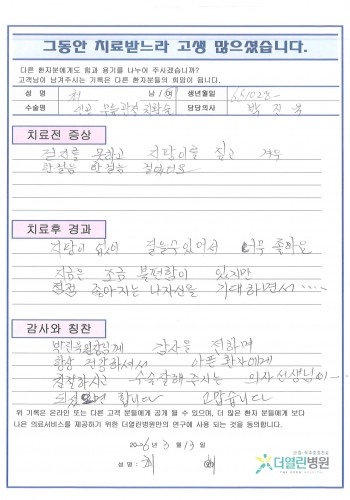 그동안 치료받느라 고생 많으셨습니다.
다른 환자분에게도 힘과 용기를 나누어 주시겠습니까?
고객님이 남겨주시는 기록은 다른 환자분들의 희망이 됩니다.
성 명 최 남 / 여 생년월일 651028-
수술명 인공 무릎관절 치환술 담당의사 박진욱
치료전 증상
걷지를 못하고 지팡이를 짚고 겨우
한걸음 한걸음 걸었어요
치료후 경과
지팡이 없이 걸을수 있어서 너무 좋아요
지금은 조금 불편함이 있지만
점점 좋아지는 나자신을 기대하면서……
감사와 칭찬
박진욱원장님께 감사를 전하며
항상 건강하셔서 아픈 환자에게
친절하시고 수술잘해주시는 의사선생님이…
되셨으면 합니다 고맙습니다
위 기록은 온라인 또는 다른 고객 분들에게 공개 될 수 있으며, 더 많은 환자 분들에게 보다
나은 의료서비스를 제공하기 위한 더열린병원만의 연구에 사용 되는 것을 동의합니다.
2026년 3월 13일
성 명 : 최 희
더열린병원
THE OPEN HOSPITAL